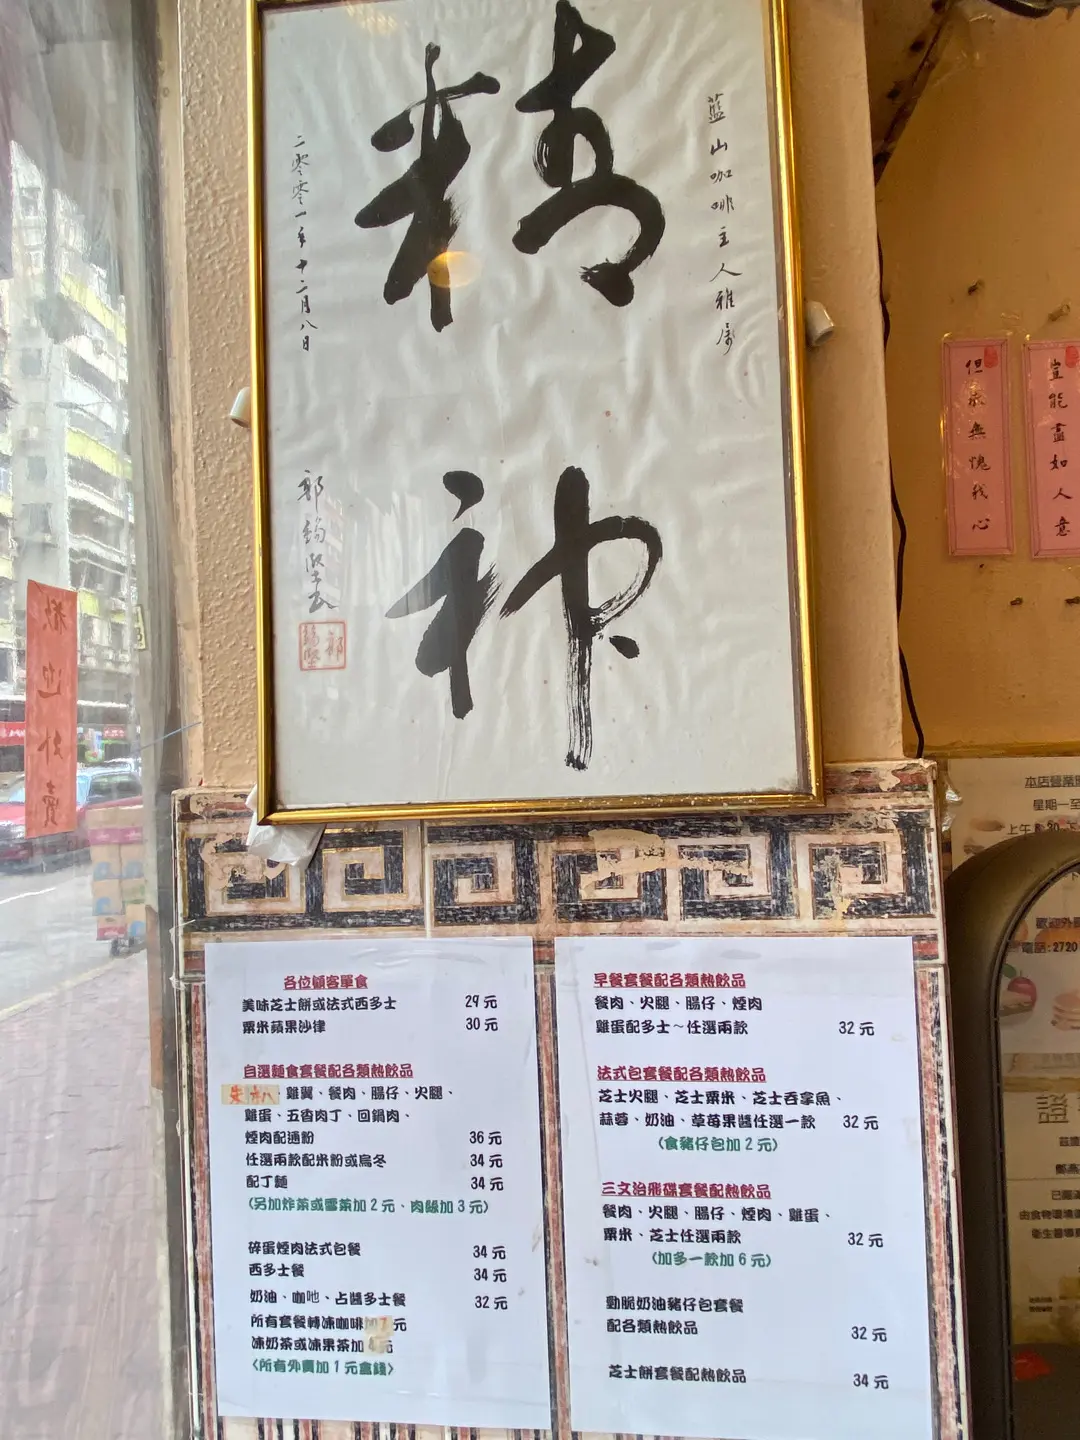 精神
藍山咖啡主人雅屬
二零零一年十二月八日
郭錫堅
但求無愧我心
豈能盡如人意
歡迎外賣
本店營業
星期一至
上午
電話:2720
各位顧客單食
美味芝士餅或法式西多士 29元
粟米蘋果沙律 30元
自選麵食套餐配各類熱飲品
雞翼、餐肉、腸仔、火腿、
雞蛋、五香肉丁、回鍋肉、
煙肉配通粉 36元
任選兩款配米粉或烏冬 34元
配丁麵 34元
(另加炸菜或雪菜加2元、肉絲加3元)
碎蛋煙肉法式包餐 34元
西多士餐 34元
奶油、咖吔、占醬多士餐 32元
所有套餐轉凍咖啡加 元
凍奶茶或凍果茶加 元
〈所有外賣加1元盒錢〉
早餐套餐配各類熱飲品
餐肉、火腿、腸仔、煙肉
雞蛋配多士～任選兩款 32元
法式包套餐配各類熱飲品
芝士火腿、芝士粟米、芝士吞拿魚、
蒜蓉、奶油、草莓果醬任選一款 32元
(食豬仔包加2元)
三文治飛碟套餐配熱飲品
餐肉、火腿、腸仔、煙肉、雞蛋、
粟米、芝士任選兩款 32元
(加多一款加6元)
勁脆奶油豬仔包套餐
配各類熱飲品 32元
芝士餅套餐配熱飲品 34元